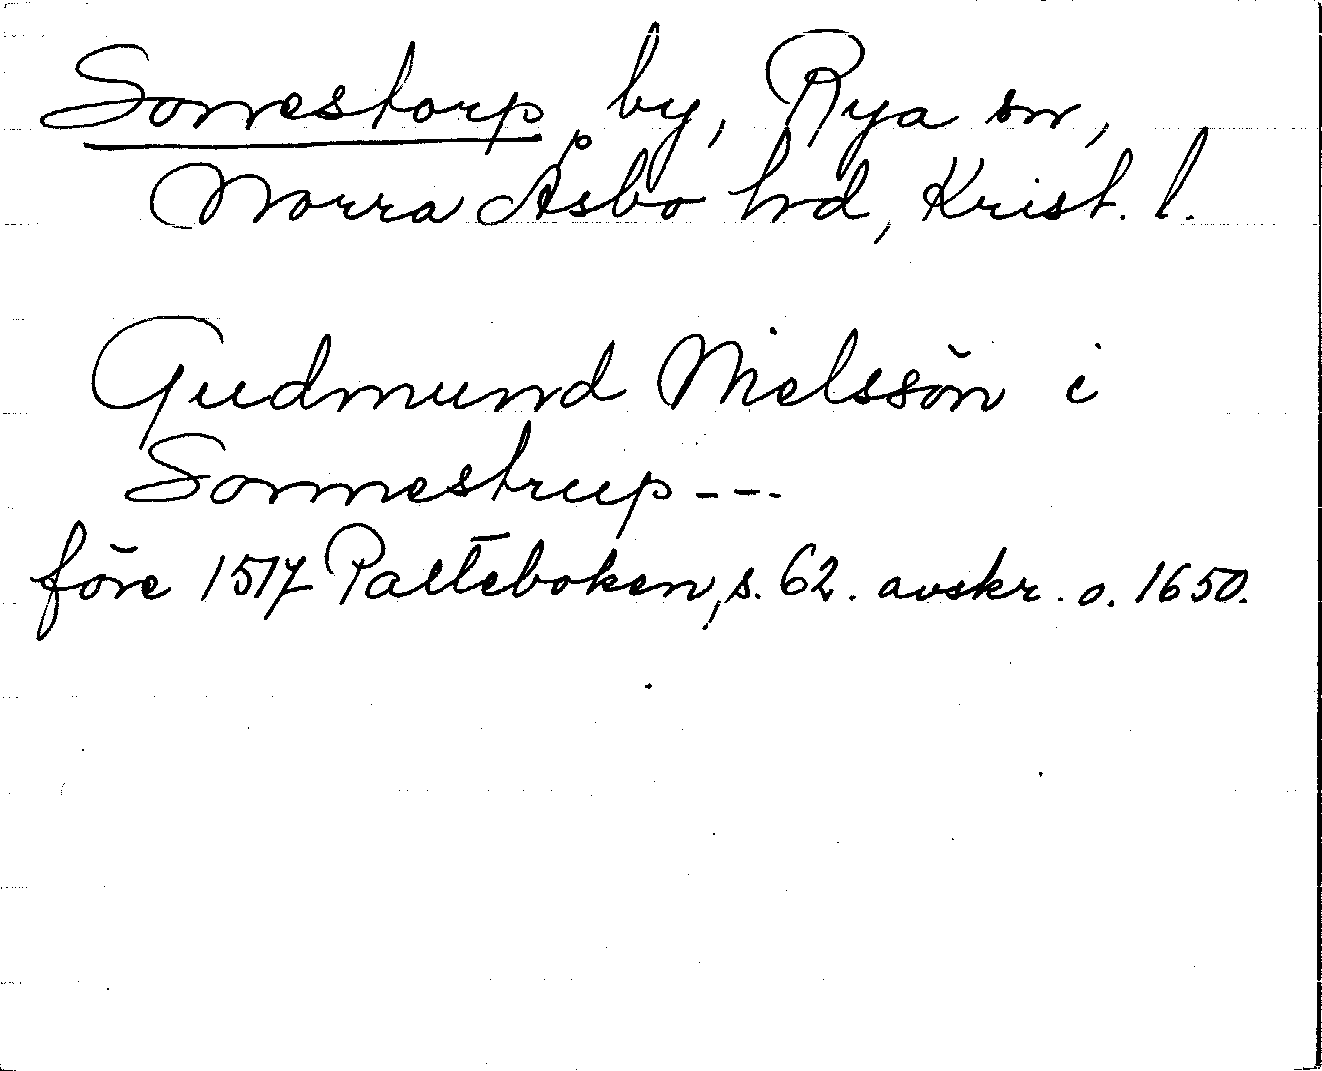 Sonnestorp by, Rya sn,
Norra Åsbo hrd, Krist. l.
Gudmund Nielssön i
Sonnestrup ---
före 1517 Palteboken, s. 62. avskr. o. 1650.